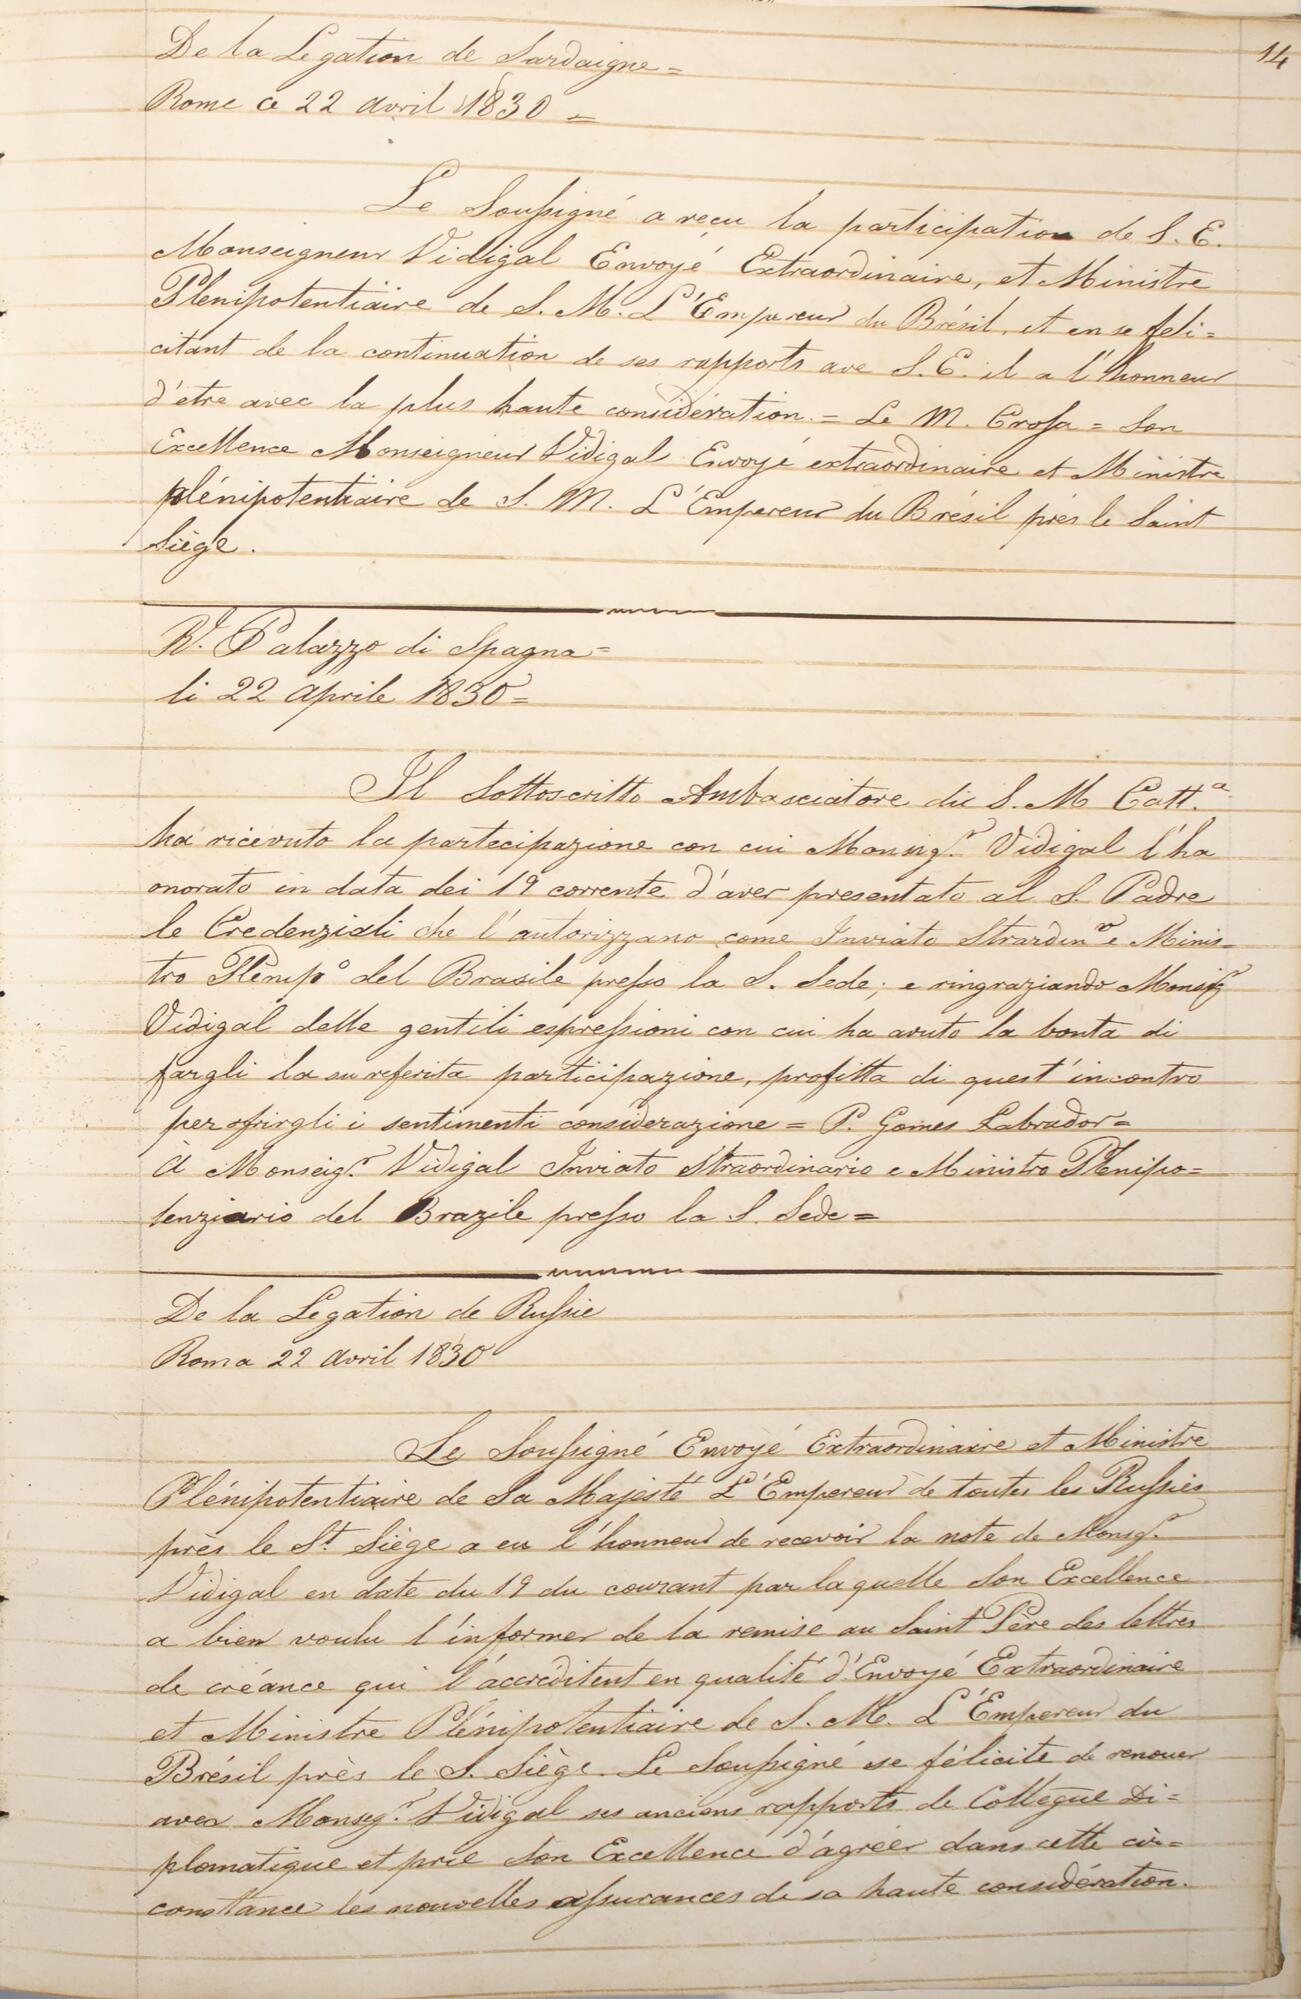 14
De la Legation de Sardaigne =
Rome ce 22 avril 1830 =
Le Soussigné a reçu la participation de S. E.
Monseigneur Vidigal Envoyé Extraordinaire, et Ministre
Plenipotentiaire de S. M. L'Empereur du Brésil, et en se feli=
citant de la continuation de ses rapports ave S. E. il a l'honneur
d'etre avec la plus haute considération. = Le M. Crosa = Son
Excellence Monseigneur Vidigal Envoyé extraordinaire et Ministre
plénipotentiaire de S. M. L'Empereur du Brésil près le Saint
Siège.
R. Palazzo di Spagna =
li 22 Aprile 1830 =
Il Sottoscritto Ambasciatore di S. M Catt.a
ha ricevuto la partecipazione con cui Monsig.r Vidigal l'ha
onorato in data dei 19 corrente d'aver presentato al S. Padre
le Credenziali che l'autorizzano come Inviato Strardin.o e Minis=
tro Plenip.o del Brasile presso la S. Sede; e ringraziando Monsig.r
Vidigal delle gentili espressioni con cui ha avuto la bonta di
fargli la su referita participazione, profitta di quest'incontro
per ofrirgli i sentimenti considerazione = P. Gomes Labrador =
A Monseig.r Vidigal Inviato Straordinario e Ministro Plenipo=
tenziario del Brazile presso la S. Sede =
De la Legation de Russie
Roma 22 Avril 1830
Le Soussigné Envoyé Extraordinaire et Ministre
Plénipotentiaire de Sa Majesté L'Empereur de toutes les Russies
près le S.t Siège a eu l'honneur de recevoir la note de Monsg.r
Vidigal en date du 19 du courant par laquelle Son Excellence
a bien voulu l'informer de la remise au Saint Père des lettres
de créance qui l'accréditent en qualité d'Envoyé Extraordinaire
et Ministre Plénipotentiaire de S. M. L'Empereur du
Brésil près le S. Siège. Le Soussigné se félicite de renouer
avec Monseg.r Vidigal ses anciens rapports de Collegue Di=
plomatique et prie Son Excellence d'agréer dans cette cir=
constance les nouvelles assurances de sa haute considération.